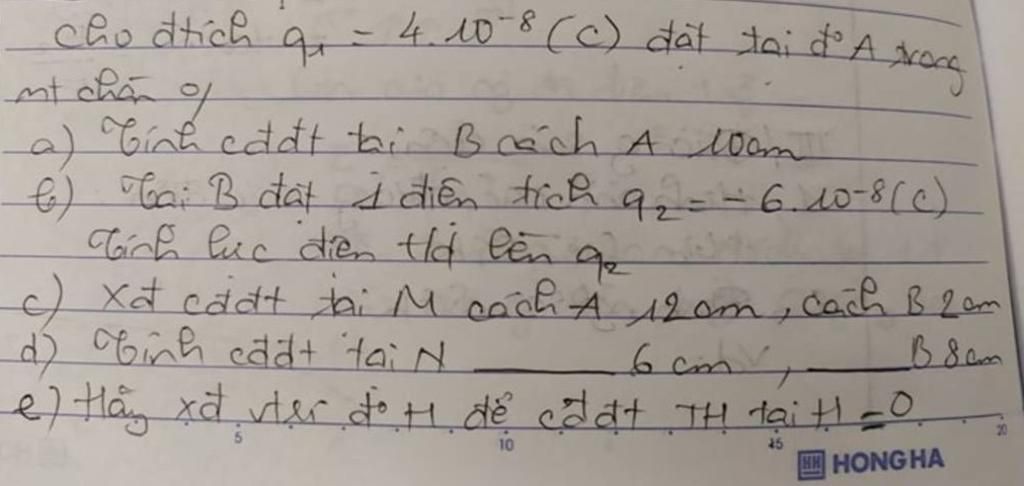 Cho đtích q₁ = 4.10⁻⁸ (C) đặt tại đ° A trong
mt chân o/
a) Tính cđđt tại B cách A 10cm
b) Tại B đặt 1 điện tích q₂ = - 6.10⁻⁸ (C)
Tính lực điện t/d lên q₂
c) Xđ cđđt tại M cách A 12cm, cách B 2cm
d) Tính cđđt tại N ______ 6 cm, ____ B 8cm
e) Hãy xđ vị trí đ° H để cđđt TH tại H = 0
5 10 15 20
HH HONG HA